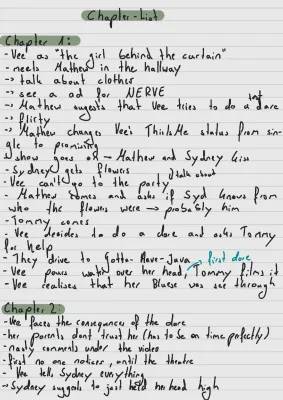 Chapter-List
Chapter 1:
- Vee as "the girl behind the curtain"
- meets Mathew in the hallway
→ talk about clothes
→ see a ad for NERVE
→ Mathew sugests that Vee tries to do a dare
→ flirty
→ Mathew changes Vee's ThisIsMe status from sin-
gle to promising
- show goes on → Mathew and Sydney kiss
- Sydney gets flowers
- Vee can't go to the party talk about
- Mathew comes and asks if Syd knows from
who the flowers were → probably him
- Tommy comes
- Vee decides to do a dare and asks Tommy
for help
- They drive to Gotta-Have-Java → first dare
- Vee pours water over her head, Tommy films it
- Vee realises that her Bluese was see through
Chapter 2:
- Vee faces the consequences of the dare
- her parents dont trust her (has to be on time perfectly)
- nasty comments under the video
- first no one notices, until the theatre
- Vee tells Sydney everything
→ Sydney suggests to just held her head high